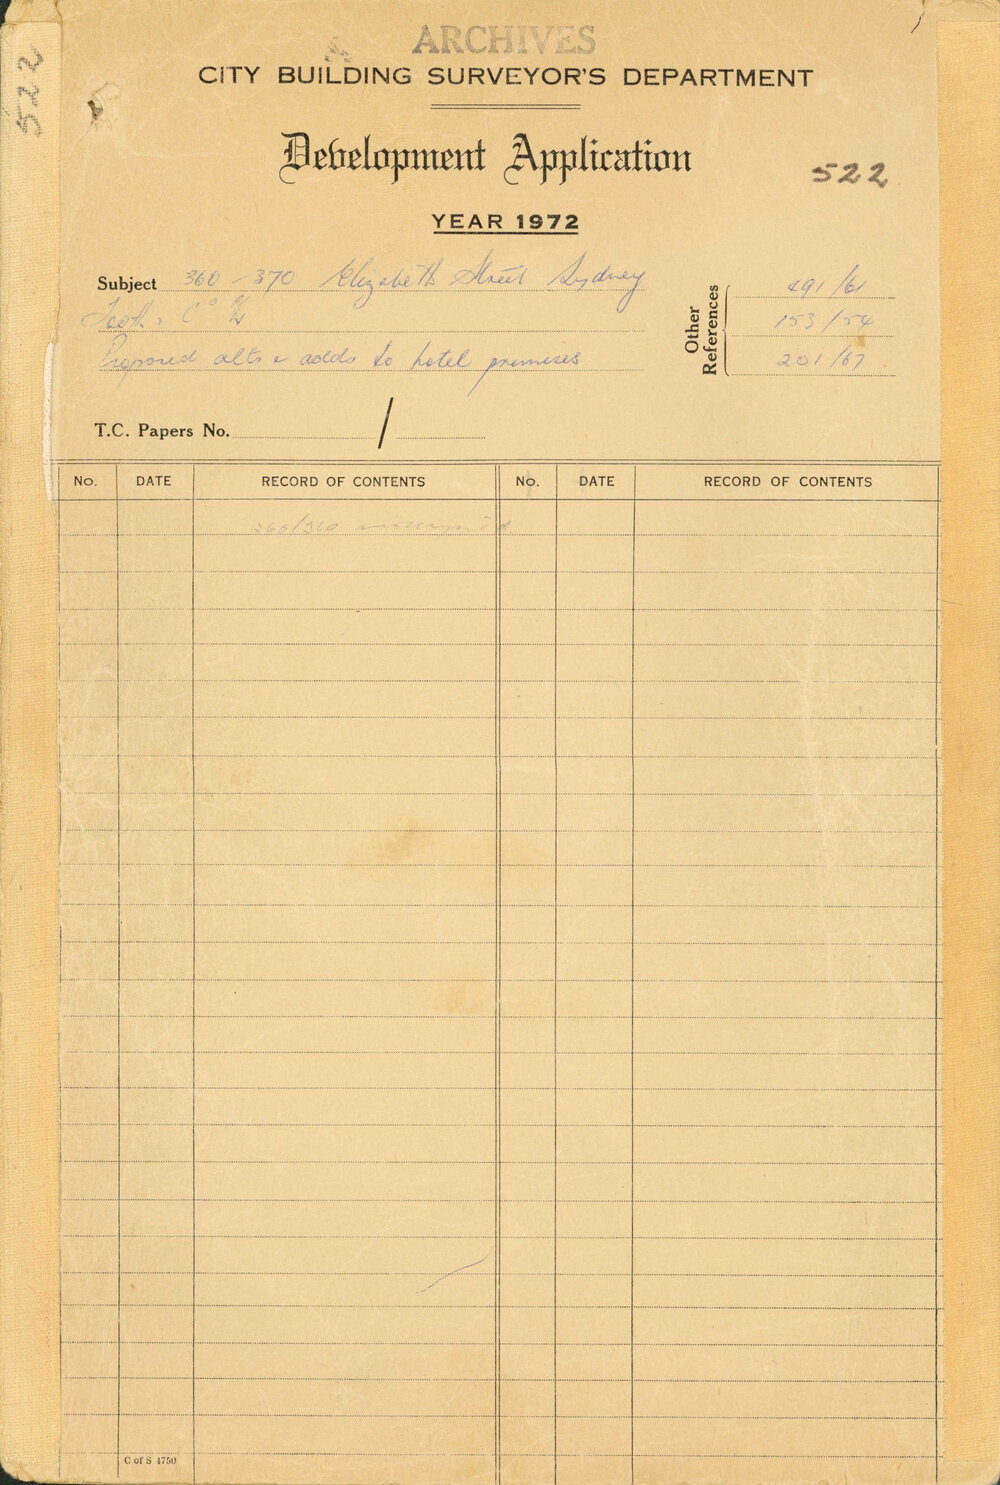 ARCHIVES
CITY BUILDING SURVEYOR'S DEPARTMENT
522
Development Application
522
YEAR 1972
Subject 360-370 Elizabeth Street Sydney
Tooth & Co P/L
Proposed alts & adds to hotel premises
Other References
491/61
153/54
201/67
T.C. Papers No. /
No. DATE RECORD OF CONTENTS No. DATE RECORD OF CONTENTS
C of S 4750